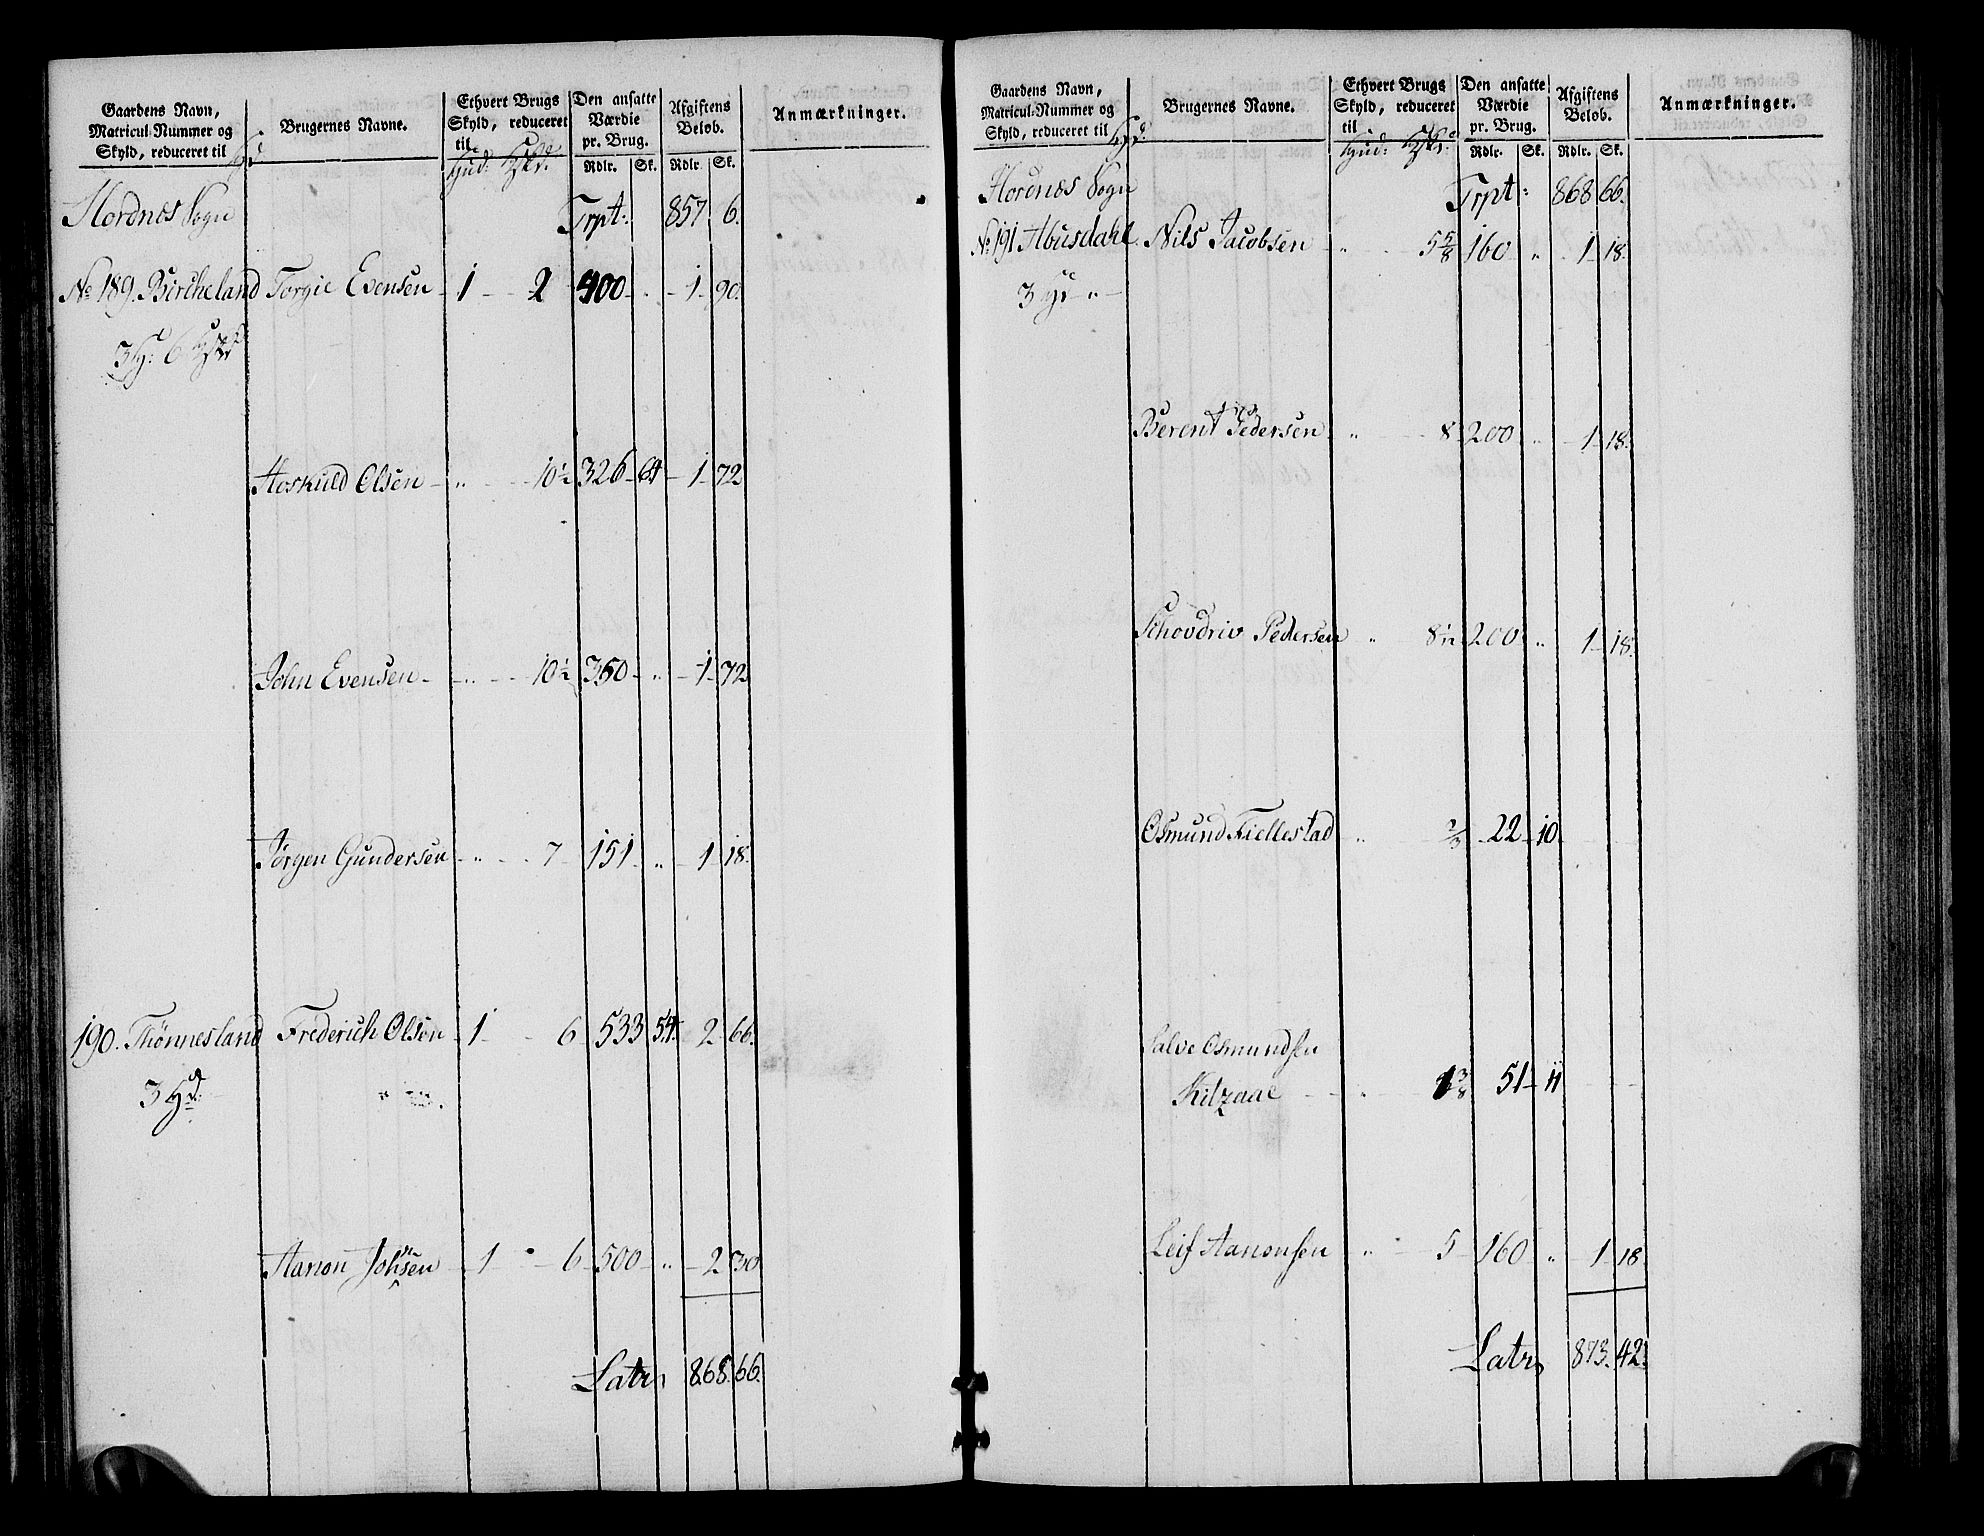 Gaardens Navn, Matricul-Nummer og Skyld, reduceret til | Brugernes Navne. | Ethvert Brugs Skyld, reduceret til | Den ansatte Værdie pr. Brug. | Afgiftens Beløb. | Anmærkninger.
Rdlr. | Sk. | Rdlr. | Sk.
Hordnes Sogn Trpt: 857 6.
No 189. Bircheland Torgie Evensen 1 2 400 " 1 90.
3 6
Aoskuld Olsen " 10½ 326 64 1 72
John Evensen " 10½ 350 " 1 72
Jørgen Gundersen " 7 151 " 1 18.
190. Thønnesland Frederich Olsen 1 6 533 54 2 66.
3
Aanon Johsen 1 6 500 " 2 30
Latr 868 66.
Gaardens Navn, Matricul-Nummer og Skyld, reduceret til | Brugernes Navne. | Ethvert Brugs Skyld, reduceret til | Den ansatte Værdie pr. Brug. | Afgiftens Beløb. | Anmærkninger.
Rdlr. | Sk. | Rdlr. | Sk.
Hordnæs Sogn Trpt: 868 66.
No 191 Abusdahl Nils Jacobsen " 5⅝ 160 " 1 18.
3 "
Berent Pedersen " 8 200 " 1 18.
Schovdriv Pedersen " 8½ 200 " 1 18.
Osmund Fiellestad " ⅔ 22 10
Salve Osmundsen
Kilzaae " 1⅜ 51 11
Leif Aanonsen " 5 160 " 1 18
Latr 873 42